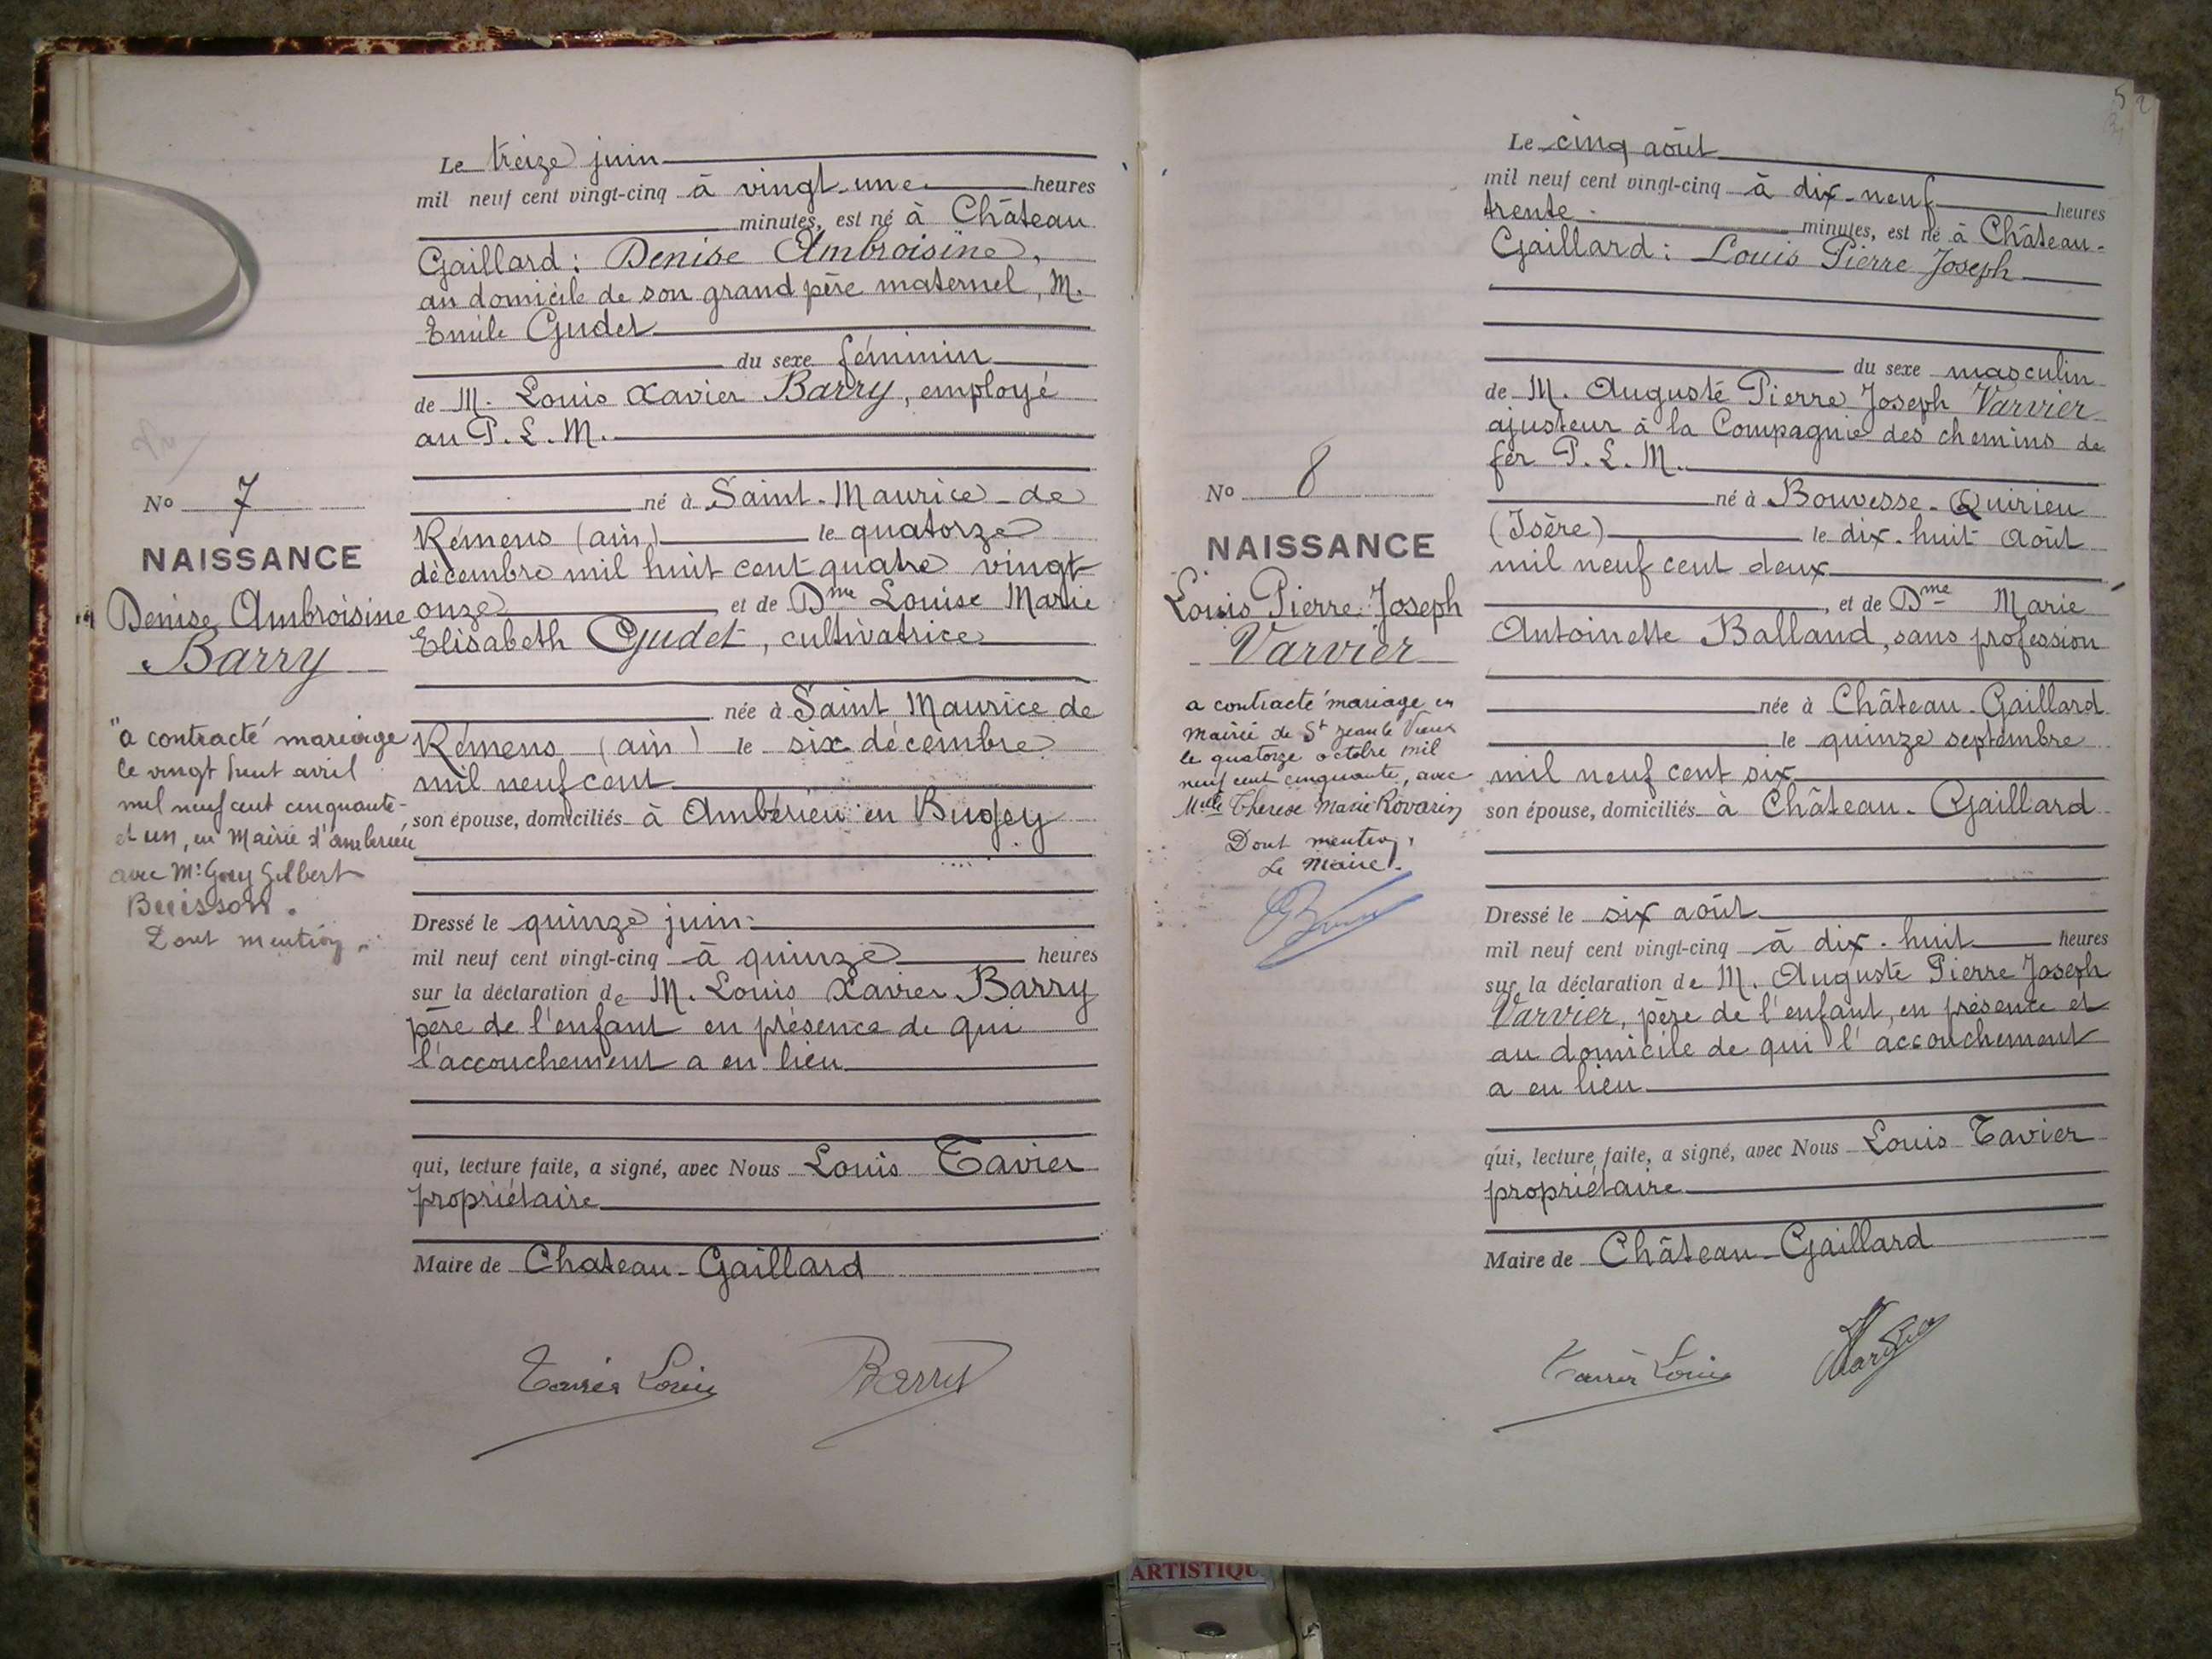 Le treize juin
mil neuf cent vingt-cinq à vingt-une heures
minutes, est né à Château
Gaillard : Denise Ambroisine,
au domicile de son grand père maternel, M.
Emile Gudet
du sexe féminin
de M. Louis Xavier Barry, employé
au P. L. M.
né à Saint-Maurice-de
Rémens (ain) le quatorze
décembre mil huit cent quatre vingt
onze et de Dme Louise Marie
Elisabeth Gudet, cultivatrice
née à Saint Maurice de
Rémens (ain) le six décembre
mil neuf cent
son épouse, domiciliés à Ambérieu en Bugey
Dressé le quinze juin
mil neuf cent vingt-cinq à quinze heures
sur la déclaration de M. Louis Xavier Barry
père de l'enfant en présence de qui
l'accouchement a eu lieu
qui, lecture faite, a signé, avec Nous Louis Tavier
propriétaire
Maire de Chateau-Gaillard
Tavier Louis Barry
No 7
NAISSANCE
Denise Ambroisine
Barry
a contracté mariage
le vingt huit avril
mil neuf cent cinquante-
et un, en Mairie d'ambérieu
avec Mr Guy Gilbert
Buisson.
Dont mention.
52
Le cinq août
mil neuf cent vingt-cinq à dix-neuf heures
trente minutes, est né à Château-
Gaillard : Louis Pierre Joseph
du sexe masculin
de M. Auguste Pierre Joseph Varvier
ajusteur à la Compagnie des chemins de
fer P. L. M.
né à Bouvesse-Quirieu
(Isère) le dix-huit août
mil neuf cent deux
, et de Dme Marie
Antoinette Balland, sans profession
née à Château-Gaillard
le quinze septembre
mil neuf cent six
son épouse, domiciliés à Château-Gaillard
Dressé le six août
mil neuf cent vingt-cinq à dix-huit heures
sur la déclaration de M. Auguste Pierre Joseph
Varvier, père de l'enfant, en présence et
au domicile de qui l'accouchement
a eu lieu
qui, lecture faite, a signé, avec Nous Louis Tavier
propriétaire
Maire de Château-Gaillard
Tavier Louis Varvier
No 8
NAISSANCE
Louis Pierre Joseph
Varvier
a contracté mariage en
mairie de St Jean le Vieux
le quatorze octobre mil
neuf cent cinquante, avec
Melle Therese Marie Rovarin
Dont mention,
Le Maire.
ARTISTIQU